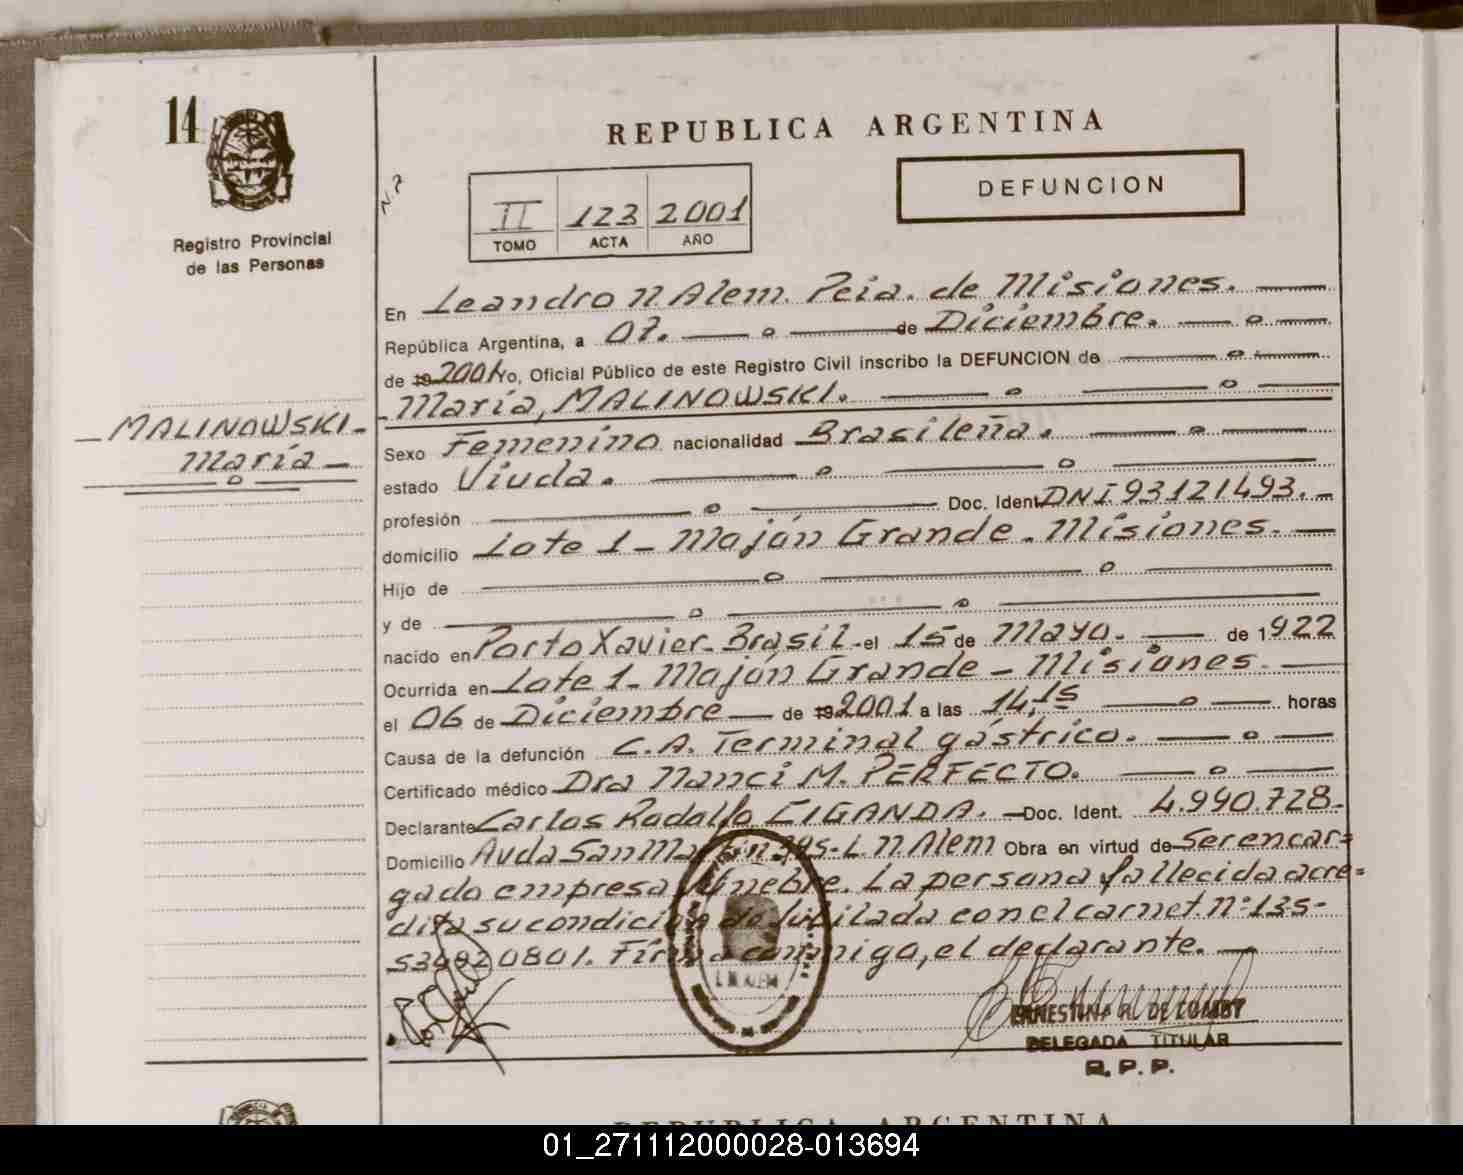 14
REPUBLICA ARGENTINA
DEFUNCION
II 123 2001
TOMO ACTA AÑO
Registro Provincial
de las Personas
En Leandro N Alem. Pcia. de Misiones.
República Argentina, a 07. de Diciembre.
de 19 2001 Yo, Oficial Público de este Registro Civil inscribo la DEFUNCION de
María, MALINOWSKI.
MALINOWSKI
María
Sexo Femenino nacionalidad Brasileña.
estado Viuda.
profesión Doc. Ident. DNI 93121493.
domicilio Lote 1 - Mojón Grande - Misiones.
Hijo de
y de
nacido en Porto Xavier - Brasil - el 15 de Mayo. de 1922
Ocurrida en Lote 1 - Mojón Grande - Misiones.
el 06 de Diciembre de 19 2001 a las 14,15 horas
Causa de la defunción C.A. Terminal gástrico.
Certificado médico Dra Nanci M. PERFECTO.
Declarante Carlos Rodolfo EIGANDA. Doc. Ident. 4.990.728-
Domicilio Avda San Martín 395 - L.N Alem Obra en virtud de Ser encar=
gado empresa fúnebre. La persona fallecida acre=
dita su condición de Jubilada con el carnet. Nº 135-
53092080 1. Firma conmigo, el declarante.
L.N. ALEM
DELEGADA TITULAR
R.P.P.
REPUBLICA ARGENTINA
01_271112000028-013694